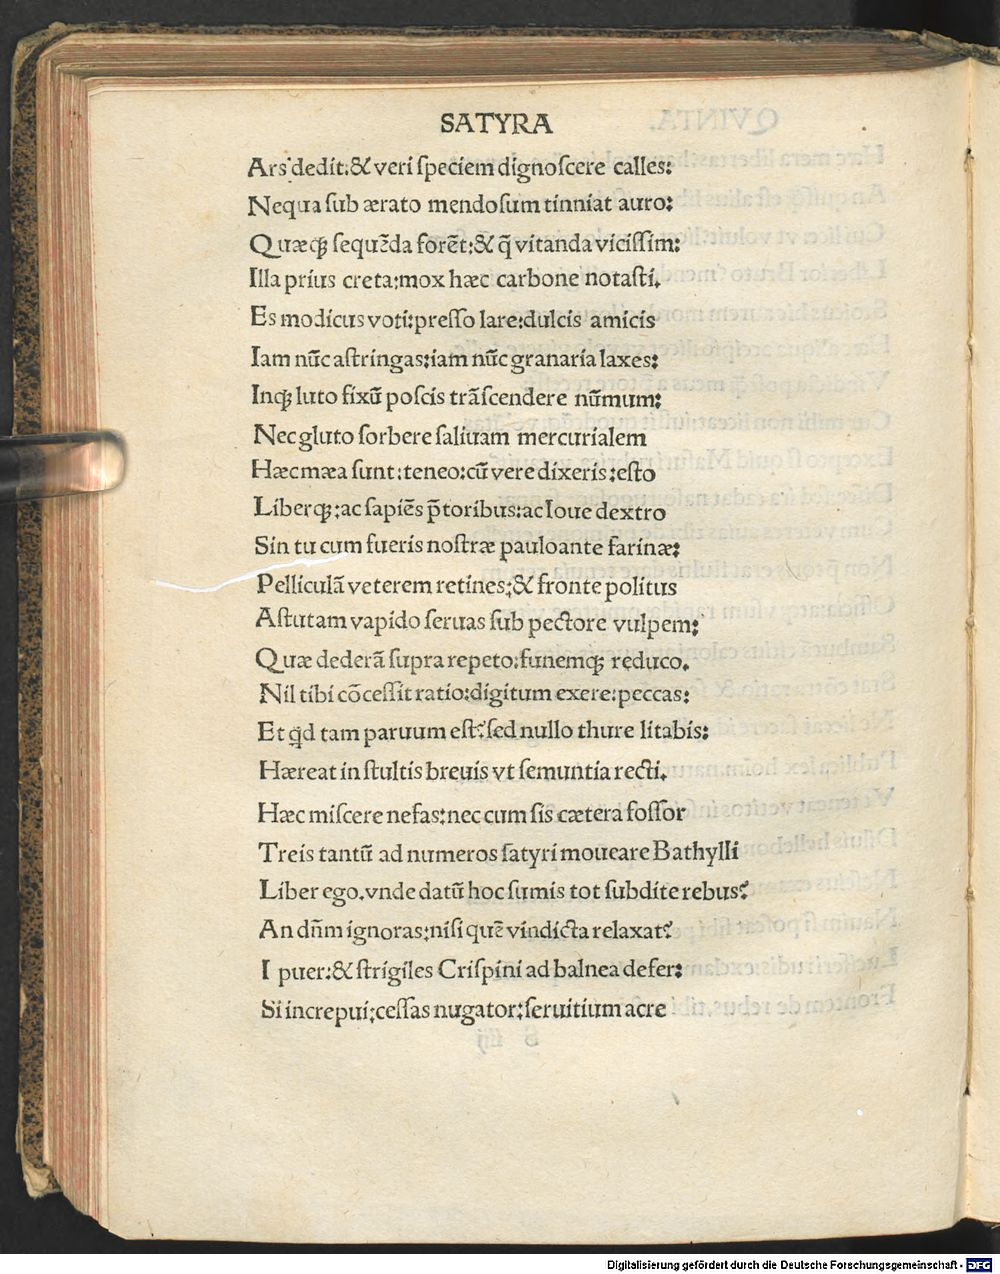 SATYRA
Ars dedit:& veri ſpeciem dignoſcere calles:
Nequa ſub ærato mendoſum tinniat auro:
Quæqꝫ ſequēda forēt:& q̄ vitanda viciſſim:
Illa prius creta:mox hæc carbone notaſti.
Es modicus voti:preſſo lare:dulcis amicis
Iam nūc aſtringas:iam nūc granaria laxes:
Inqꝫ luto fixū poſcis trāſcendere nūmum:
Nec gluto ſorbere ſaliuam mercurialem
Hæc mæa ſunt:teneo:cū vere dixeris:eſto
Liberqꝫ:ac ſapiēs p̄toribus:ac Ioue dextro
Sin tu cum fueris noſtræ pauloante farinæ:
Pelliculā veterem retines:& fronte politus
Aſtutam vapido ſeruas ſub pectore vulpem:
Quæ dederā ſupra repeto:funemqꝫ reduco.
Nil tibi cōceſſit ratio:digitum exere:peccas:
Et qd tam paruum eſt?ſed nullo thure litabis:
Hæreat in ſtultis breuis vt ſemuntia recti.
Hæc miſcere nefas:nec cum ſis cætera foſſor
Treis tantū ad numeros ſatyri moueare Bathylli
Liber ego.vnde datū hoc ſumis tot ſubdite rebus?
An dn̄m ignoras:niſi quē vindicta relaxat?
I puer:& ſtrigiles Criſpini ad balnea defer:
Si increpui:ceſſas nugator:ſeruitium acre
Digitalisierung gefördert durch die Deutsche Forschungsgemeinschaft - DFG